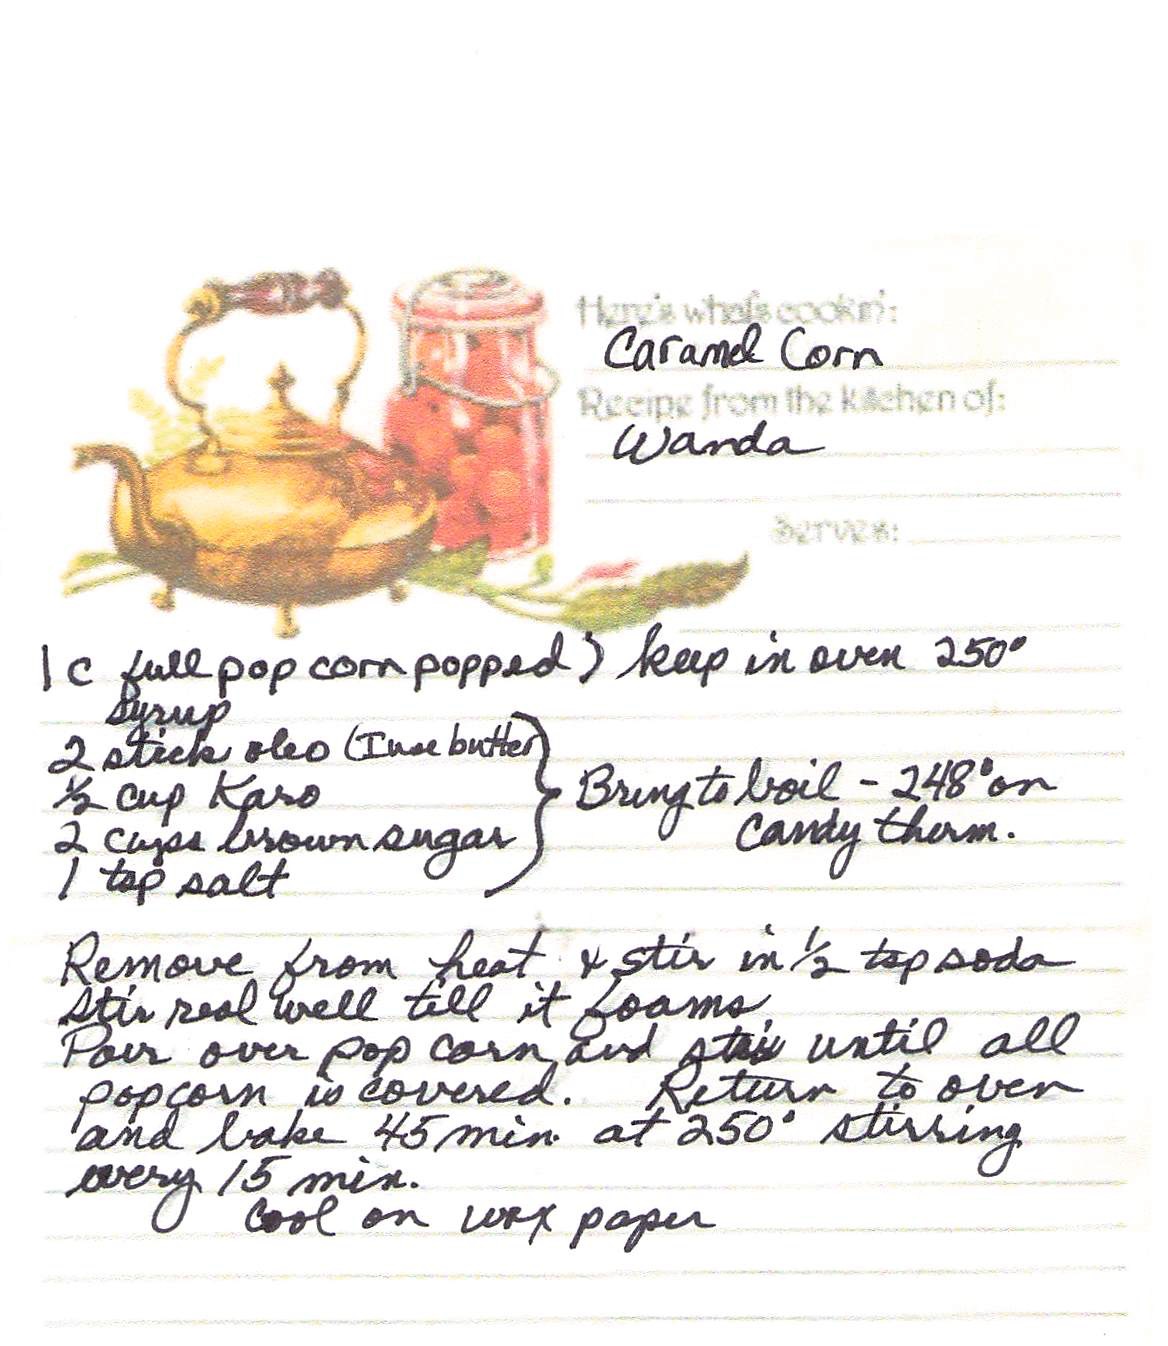 Here's what's cookin':
Caramel Corn
Recipe from the kitchen of:
Wanda
Serves:
1 c full pop corn popped } keep in oven 250°
syrup
2 stick oleo (I use butter)
1/2 cup Karo
2 cups brown sugar
1 tsp salt
} Bring to boil - 248° on
candy therm.
Remove from heat & stir in 1/2 tsp soda
Stir real well till it foams
Pour over pop corn and stir until all
popcorn is covered. Return to oven
and bake 45 min. at 250° stirring
every 15 min.
Cool on wax paper